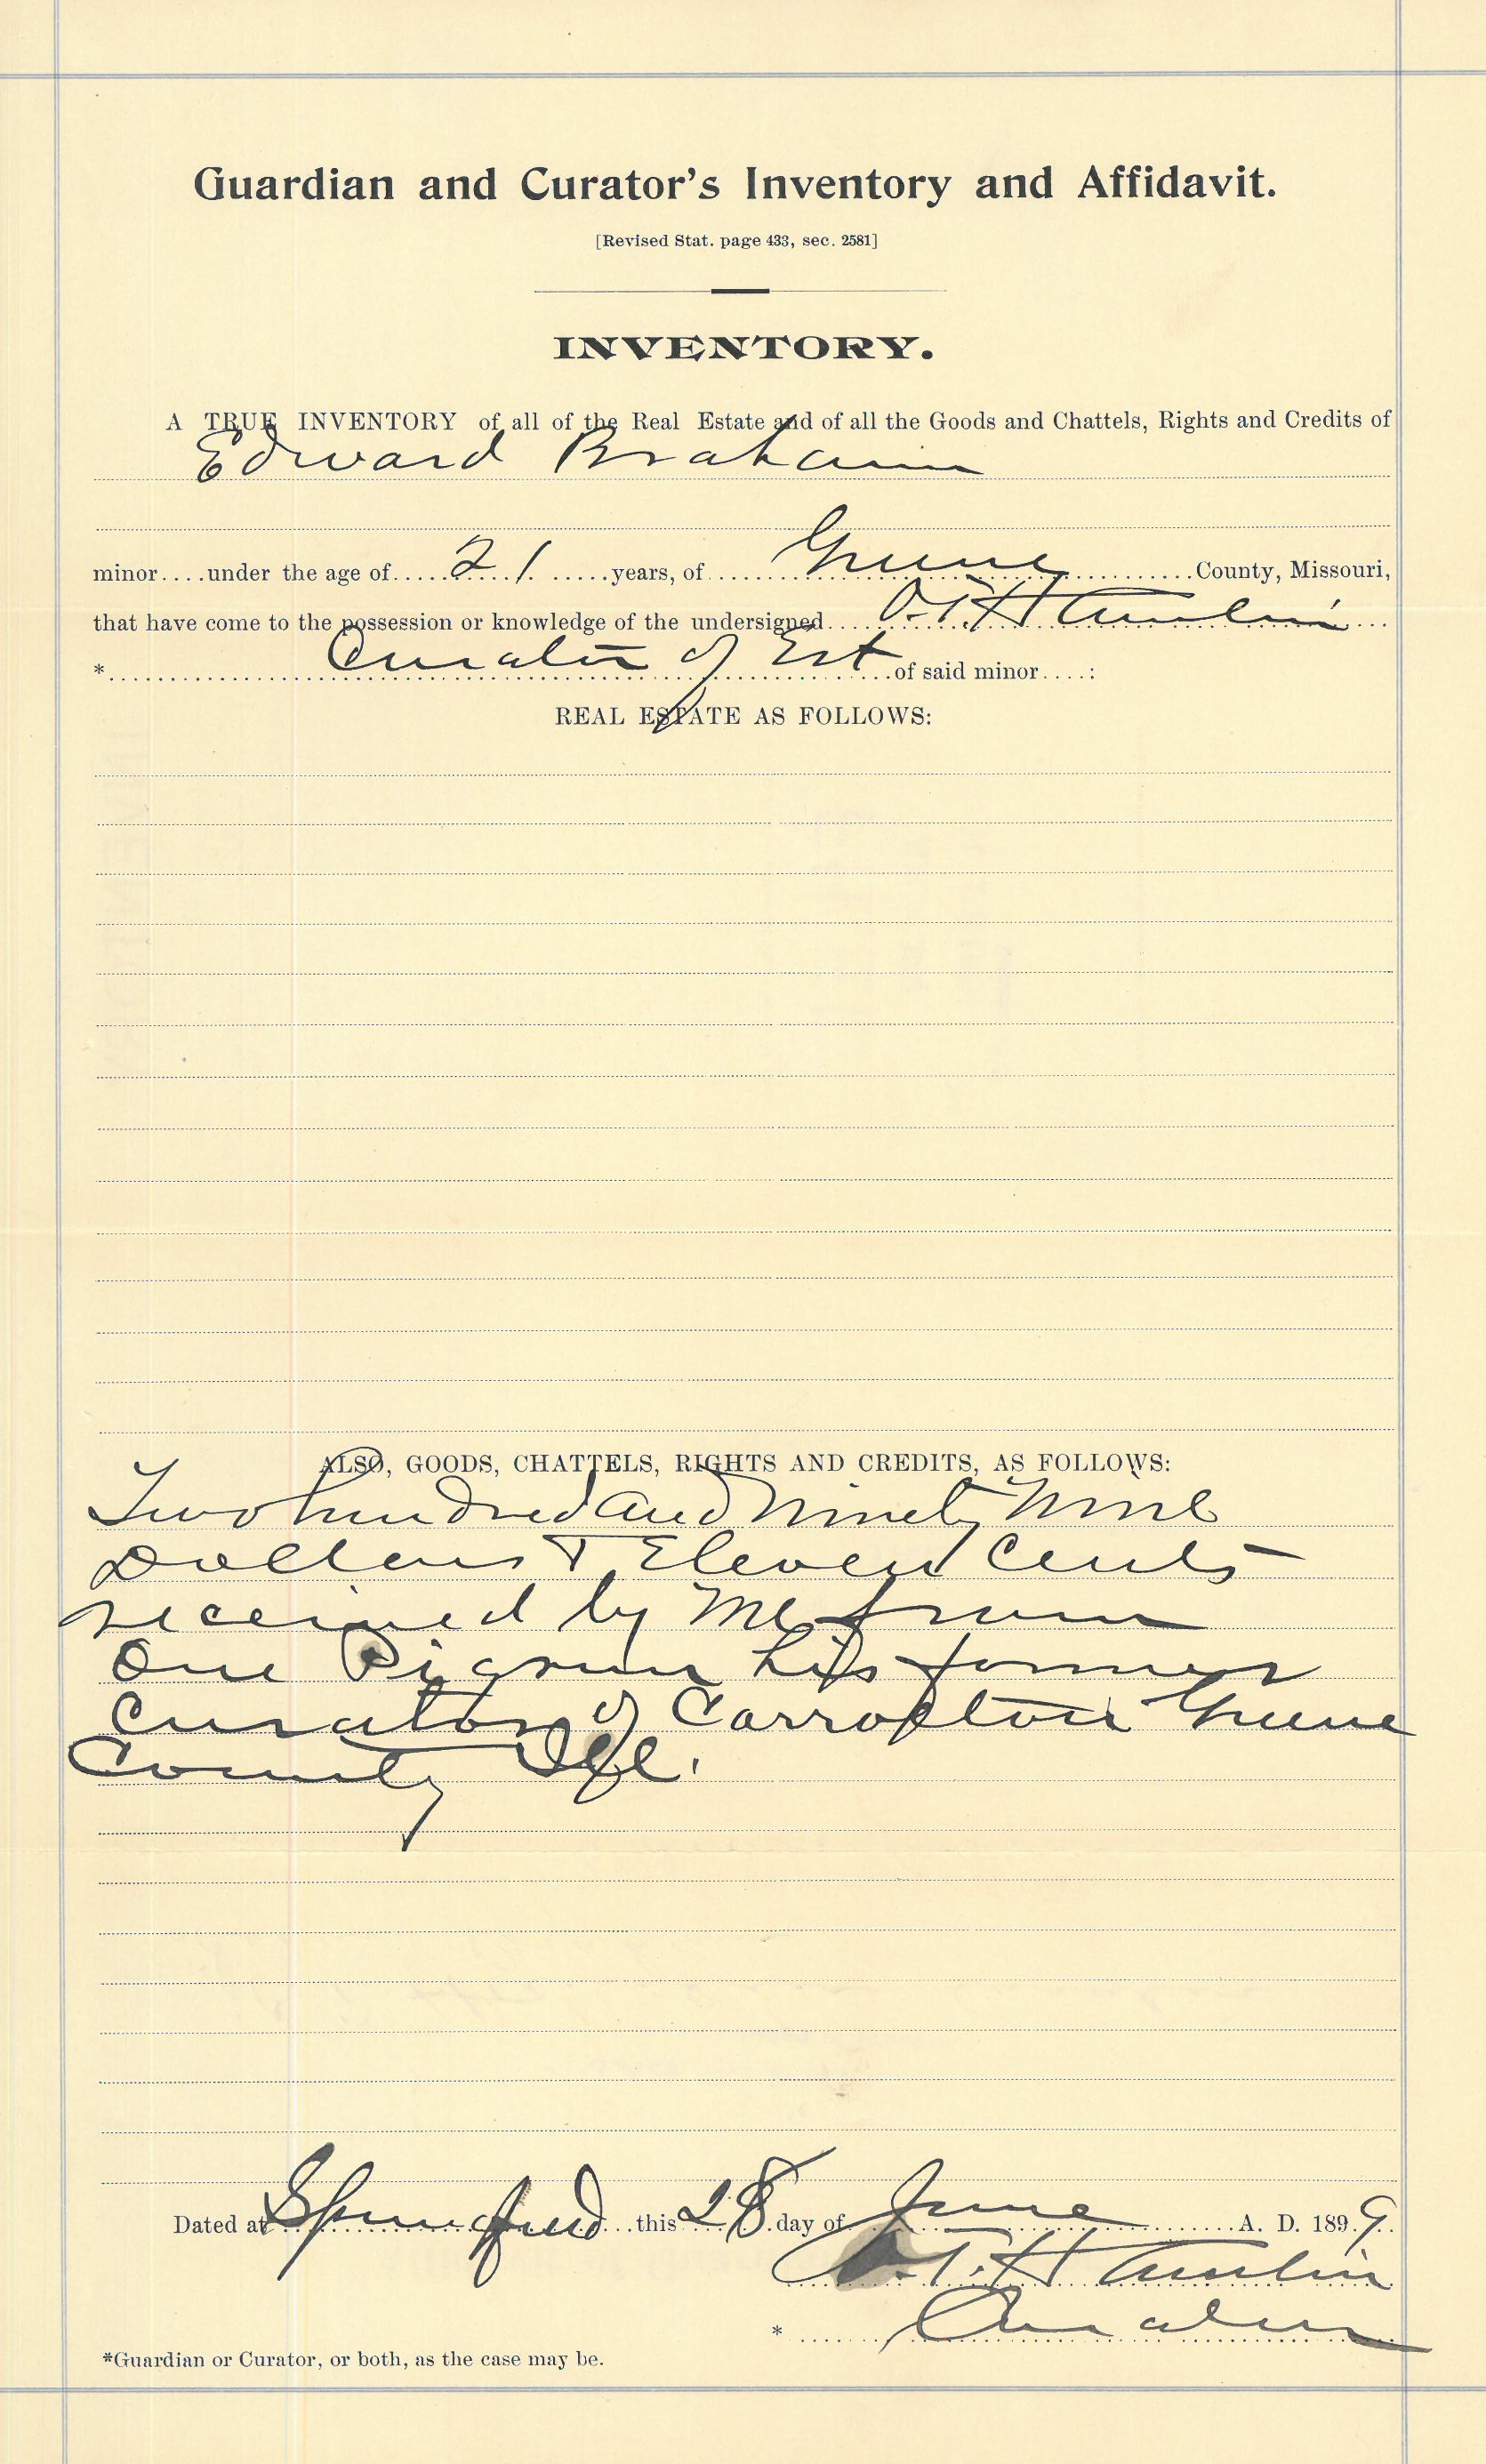 Guardian and Curator's Inventory and Affidavit.
[Revised Stat. page 433, sec. 2581]
INVENTORY.
A TRUE INVENTORY of all of the Real Estate and of all the Goods and Chattels, Rights and Credits of
Edward Braham
minor....under the age of.....21.....years, of.....Greene.....County, Missouri,
that have come to the possession or knowledge of the undersigned....O. T. Hamlin...
*.....Curator of Est.....of said minor....:
REAL ESTATE AS FOLLOWS:
ALSO, GOODS, CHATTELS, RIGHTS AND CREDITS, AS FOLLOWS:
Two hundred and Ninety Nine
Dollars & Eleven Cents
received by me from
One Pigrum his former
Curator of Carrolton Greene
County Ill.
Dated at Springfield this 28 day of June A. D. 1899.
O. T. Hamlin
* Curator
*Guardian or Curator, or both, as the case may be.